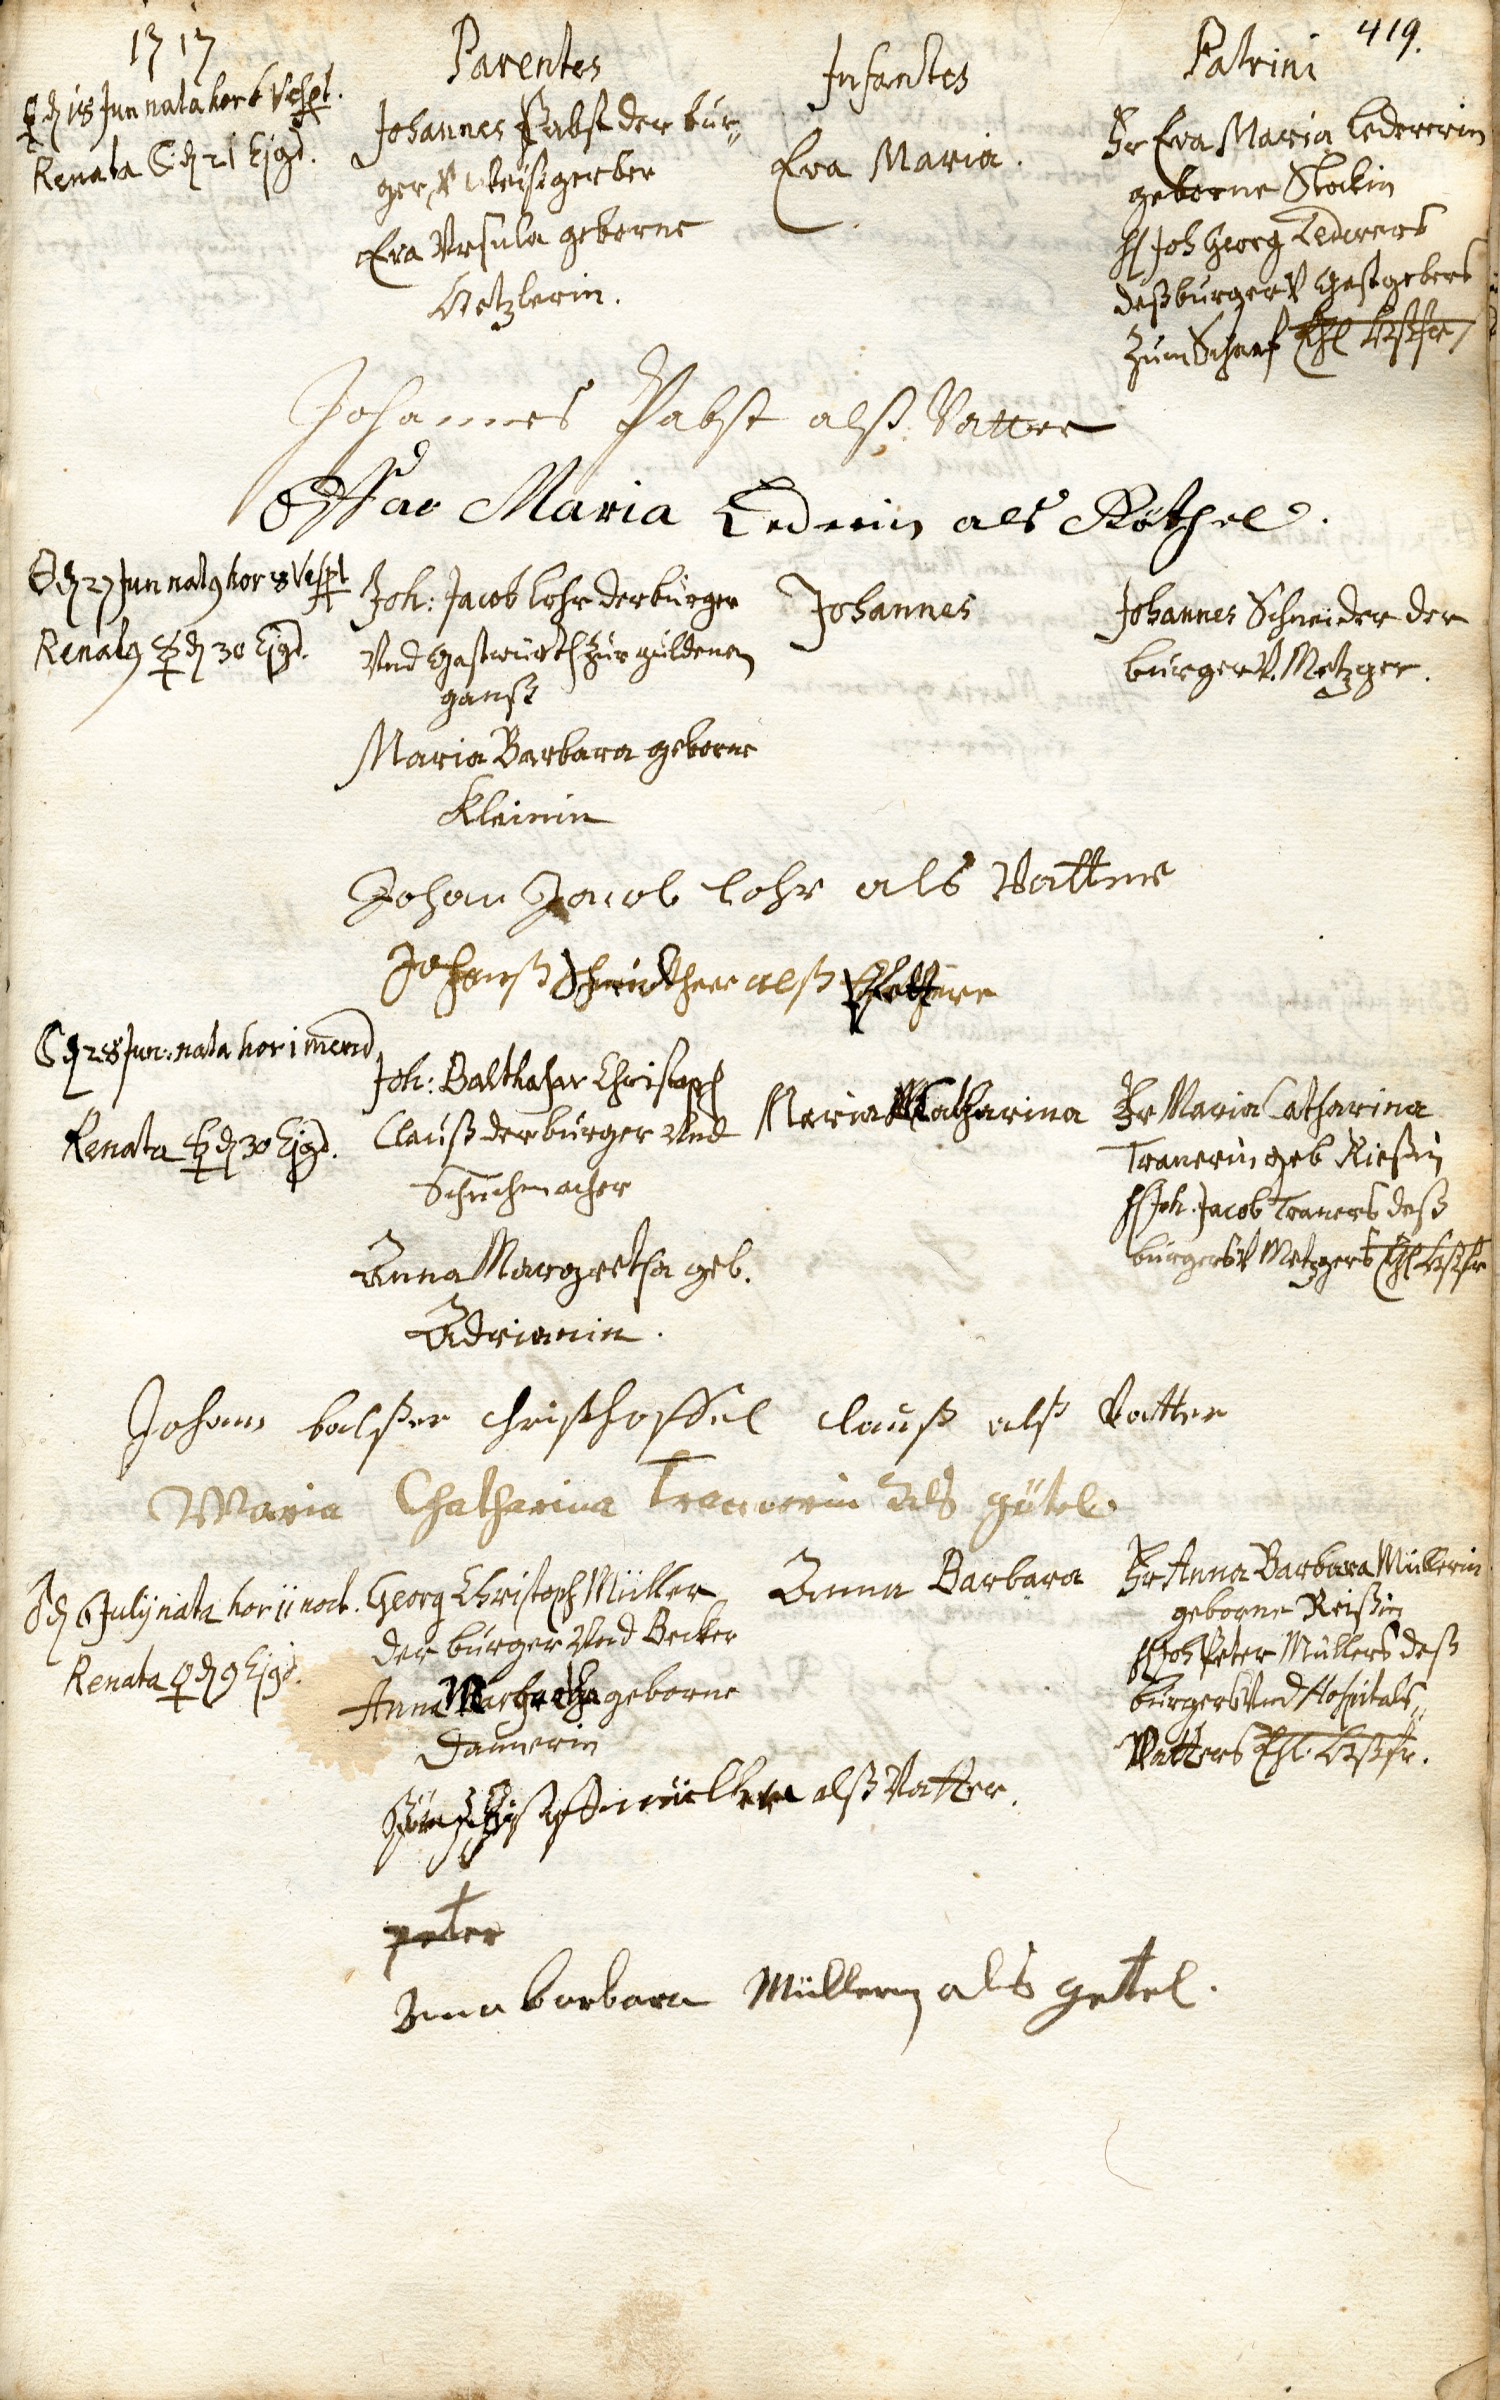 1717
Parentes
Infantes
Patrini
419.
♀ d 18 Jun nata hor 6 Vespt.
Renata ☾ d 21 Ejusd.
Johannes Pabst der bur„
ger V Weißgerber
Eva Ursula geborne
Eva Maria.
Fr Eva Maria Ledererin
geborne Stockin
H Joh Georg Lederers
deß burger V Gastgebers
Zum Schaaf Ehl
Johannes Pabst alß Vatter
Maria Lederin als
☉ d 27 Jun nat9 hor 8 Vespt
Renat9 ☿ d 30 Ejusd.
Joh: Jacob Lohr der burger
Vnd Gastwürth zur güldenen
ganß
Maria Barbara geborne
Kleinin
Johannes
Johannes Schneider der
burger V. Metzger.
Johan Jacob lohr als Vatter
Johanß alß
☾ d 28 Jun: nata hor 1 merid
Renata ☿ d 30 Ejusd.
Joh: Balthasar Christoph
Clauß der burger Vnd
Schuchmacher
Anna Margretha geb.
Adrianin.
Maria Catharina
Fr Maria Catharina
Tranerin geb Rießin
H Joh. Jacob Traners deß
burgers V Metzgers Ehl
Johans balßer clauß alß Vatter
Maria Chatharina Tranerin als götel
♂ d 6 July nata hor 11 noct.
Renata ♀ d 9 Ejusd.
Georg Christoph Müller
der burger Vnd Becker
Anna Margretha geborne
Dannerin
Anna Barbara
Fr Anna Barbara Müllerin
geborne Reißin
H Joh Peter Müllers deß
burgers Vnd Hospitals„
Vatters Ehl.
müller alß Vatter.
peter
Anna barbara Müllerin als gettel.